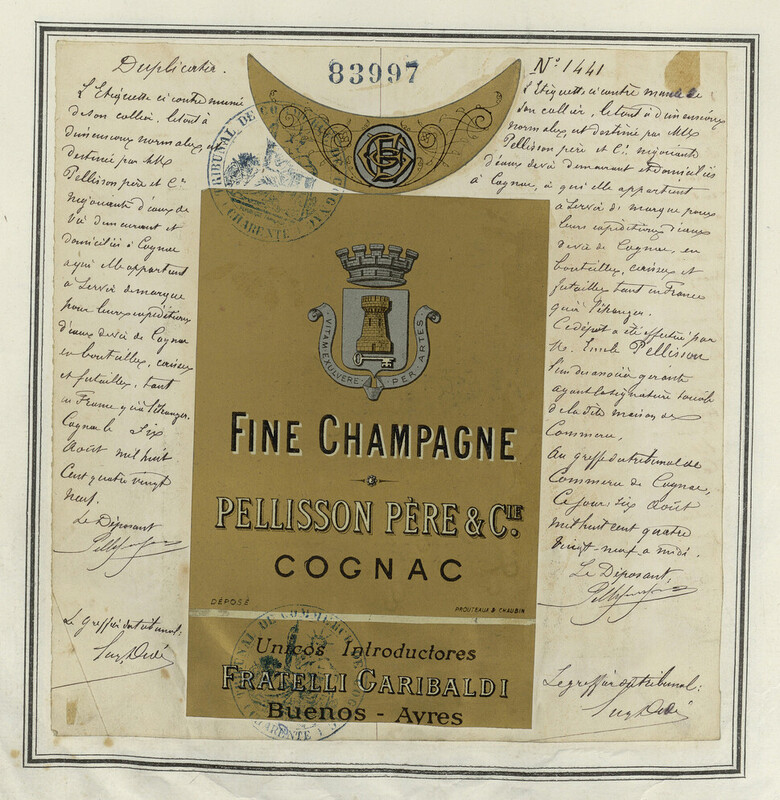 83997
Duplicata.
L'Etiquette ci contre munie
de son collier, le tout à
dimensions normales et
destiné par MM
Pellisson père et Cie
négociants d'eaux de
vie demeurant et
domiciliés à Cognac
à qui elle appartient
à servir de marque
pour leurs expéditions
d'eaux de vie de Cognac
en bouteilles, caisses
et futailles, tant
en France qu'à l'étranger.
Cognac le Six
Août mil huit
Cent quatre vingt
neuf.
Le Déposant
Le Greffier du tribunal:
No 1441
L'Etiquette ci contre munie de
son collier, le tout à dimensions
normales, et destiné par MM
Pellisson père et Cie négociants
d'eaux de vie demeurant et domiciliés
à Cognac, à qui elle appartient
à servir de marque pour
leurs expéditions d'eaux
de vie de Cognac, en
bouteilles, caisses et
futailles tant en France
qu'à l'étranger.
Ce dépôt a été effectué par
M. Emile Pellisson
l'un des associés gérants
ayant la signature sociale
de la dite maison de
Commerce.
Au greffe du tribunal de
Commerce de Cognac,
Ce jour, six Août
mil huit cent quatre
vingt-neuf à midi.
Le Déposant,
Le greffier du tribunal:
TRIBUNAL DE CO
CHARENTE
VITAM EXCULVERE PER ARTES
FINE CHAMPAGNE
PELLISSON PÈRE & CIE.
COGNAC
DÉPOSÉ
PROUTEAUX & CHAUBIN
Unicos Introductores
FRATELLI GARIBALDI
Buenos - Ayres